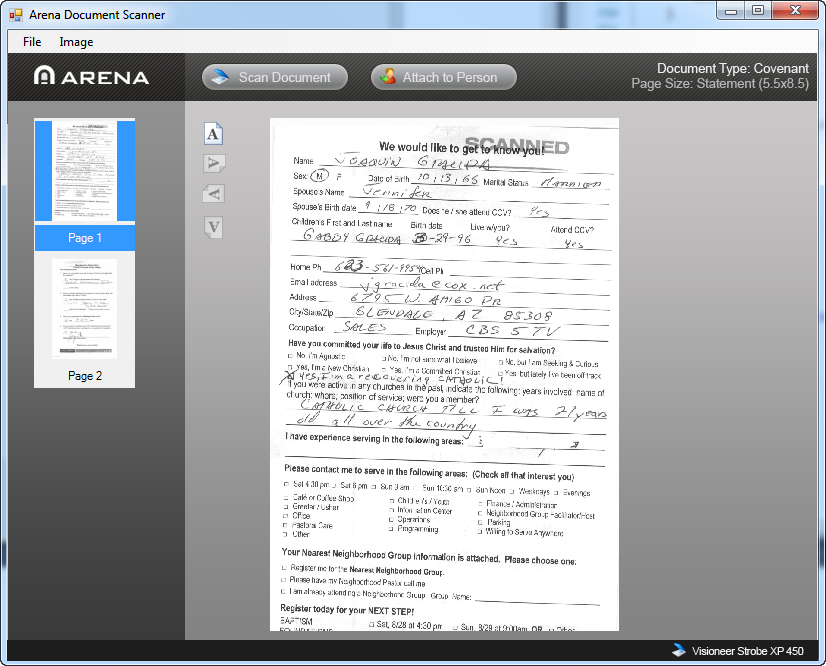 Arena Document Scanner
File Image
ARENA
Scan Document
Attach to Person
Document Type: Covenant
Page Size: Statement (5.5x8.5)
Page 1
Page 2
A
A
A
V
SCANNED
We would like to get to know you!
Name JOAQUIN GRACIDA
Sex: M F Date of Birth 10/13/66 Marital Status MARRIED
Spouse's Name Jennifer
Spouse's Birth date 9/18/70 Does he / she attend CCV? Yes
Children's First and Last name Birth date Live w/you? Attend CCV?
GABBY GRACIDA 3-29-96 Yes Yes
Home Ph 623-561-9959 Cell Ph
Email address jgracida@cox.net
Address 6795 W. AMIGO DR
City/State/Zip GLENDALE, AZ 85308
Occupation SALES Employer CBS 5 TV
Have you committed your life to Jesus Christ and trusted Him for salvation?
No, I'm Agnostic No, I'm not sure what I believe No, but I am Seeking & Curious
Yes, I'm a New Christian Yes, I'm a Committed Christian Yes, but lately I've been off track
X Yes, I'm a recovering CATHOLIC!
If you were active in any churches in the past, indicate the following: years involved, name of
church; where; position of service; were you a member?
CATHOLIC CHURCH TILL I was 21 years
old all over the country
I have experience serving in the following areas:
Please contact me to serve in the following areas: (Check all that interest you)
Sat 4:30 pm Sat 6 pm Sun 9 am Sun 10:30 am Sun Noon Weekdays Evenings
Café or Coffee Shop Children's / Youth Finance / Administration
Greeter / Usher Information Center Neighborhood Group Facilitator/Host
Office Operations Parking
Pastoral Care Programming Willing to Serve Anywhere
Other
Your Nearest Neighborhood Group information is attached. Please choose one:
Register me for the Nearest Neighborhood Group.
Please have my Neighborhood Pastor call me
I am already attending a Neighborhood Group. Group Name:
Register today for your NEXT STEP!
BAPTISM Sat, 8/28 at 4:30 pm Sun, 8/29 at 9:00am OR Other
FOUNDATIONS
Visioneer Strobe XP 450